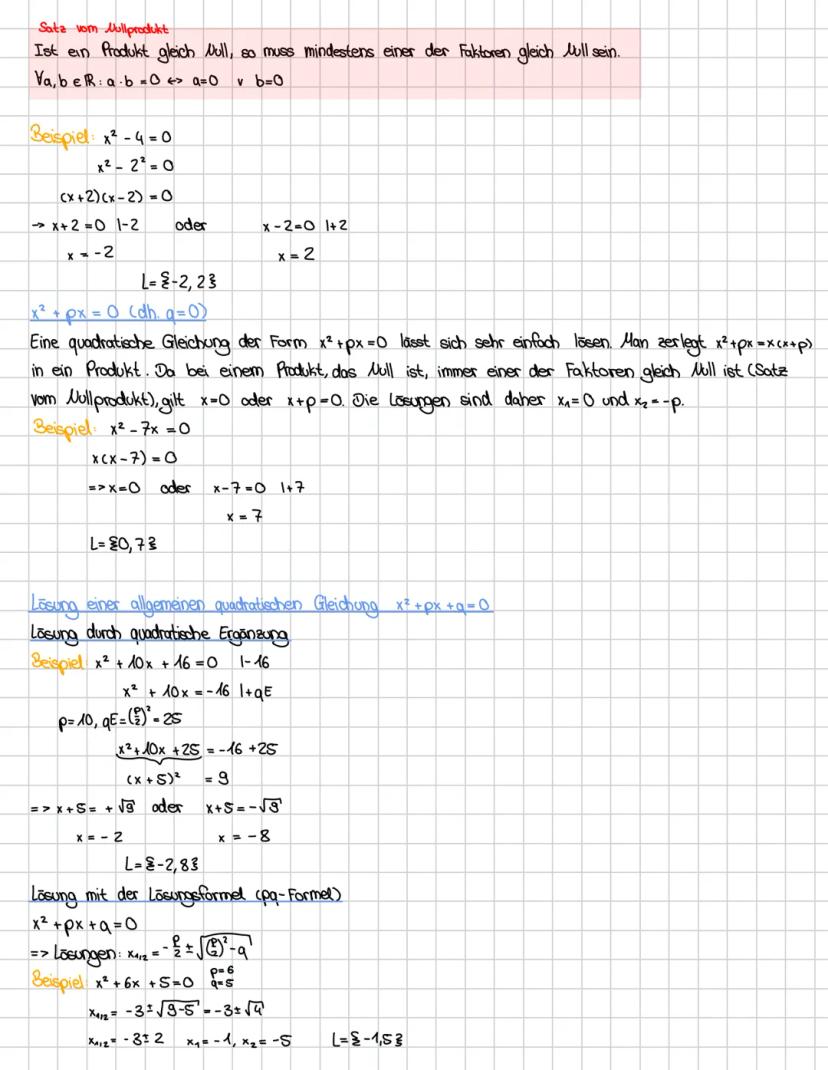 Satz vom Nullprodukt
Ist ein Produkt gleich Null, so muss mindestens einer der Faktoren gleich Null sein.
∀a,b ∈ ℝ: a · b = 0 ↔ a=0 ∨ b=0
Beispiel: x² - 4 = 0
x² - 2² = 0
(x+2)(x-2) = 0
→ x+2 = 0 |-2 oder x-2=0 |+2
x = -2 x = 2
L={-2, 2}
x² + px = 0 (dh. q=0)
Eine quadratische Gleichung der Form x²+px=0 lässt sich sehr einfach lösen. Man zerlegt x²+px=x(x+p)
in ein Produkt. Da bei einem Produkt, das Null ist, immer einer der Faktoren gleich Null ist (Satz
vom Nullprodukt), gilt x=0 oder x+p=0. Die Lösungen sind daher x₁=0 und x₂=-p.
Beispiel: x² - 7x = 0
x(x-7) = 0
=> x=0 oder x-7=0 |+7
x = 7
L={0,7}
Lösung einer allgemeinen quadratischen Gleichung x²+px+q=0
Lösung durch quadratische Ergänzung
Beispiel: x² + 10x + 16 = 0 |-16
x² + 10x = -16 |+qE
p=10, qE=(p/2)²=25
x²+10x+25 = -16+25
(x+5)² = 9
=> x+5 = +√9 oder x+5=-√9
x = -2 x = -8
L={-2,8}
Lösung mit der Lösungsformel (pq-Formel)
x²+px+q=0
=> Lösungen: x₁/₂ = -p/2 ± √((p/2)²-q)
Beispiel: x²+6x+5=0 p=6 q=5
x₁/₂ = -3±√9-5 = -3±√4
x₁/₂ = -3±2 x₁=-1, x₂=-5 L={-1,5}